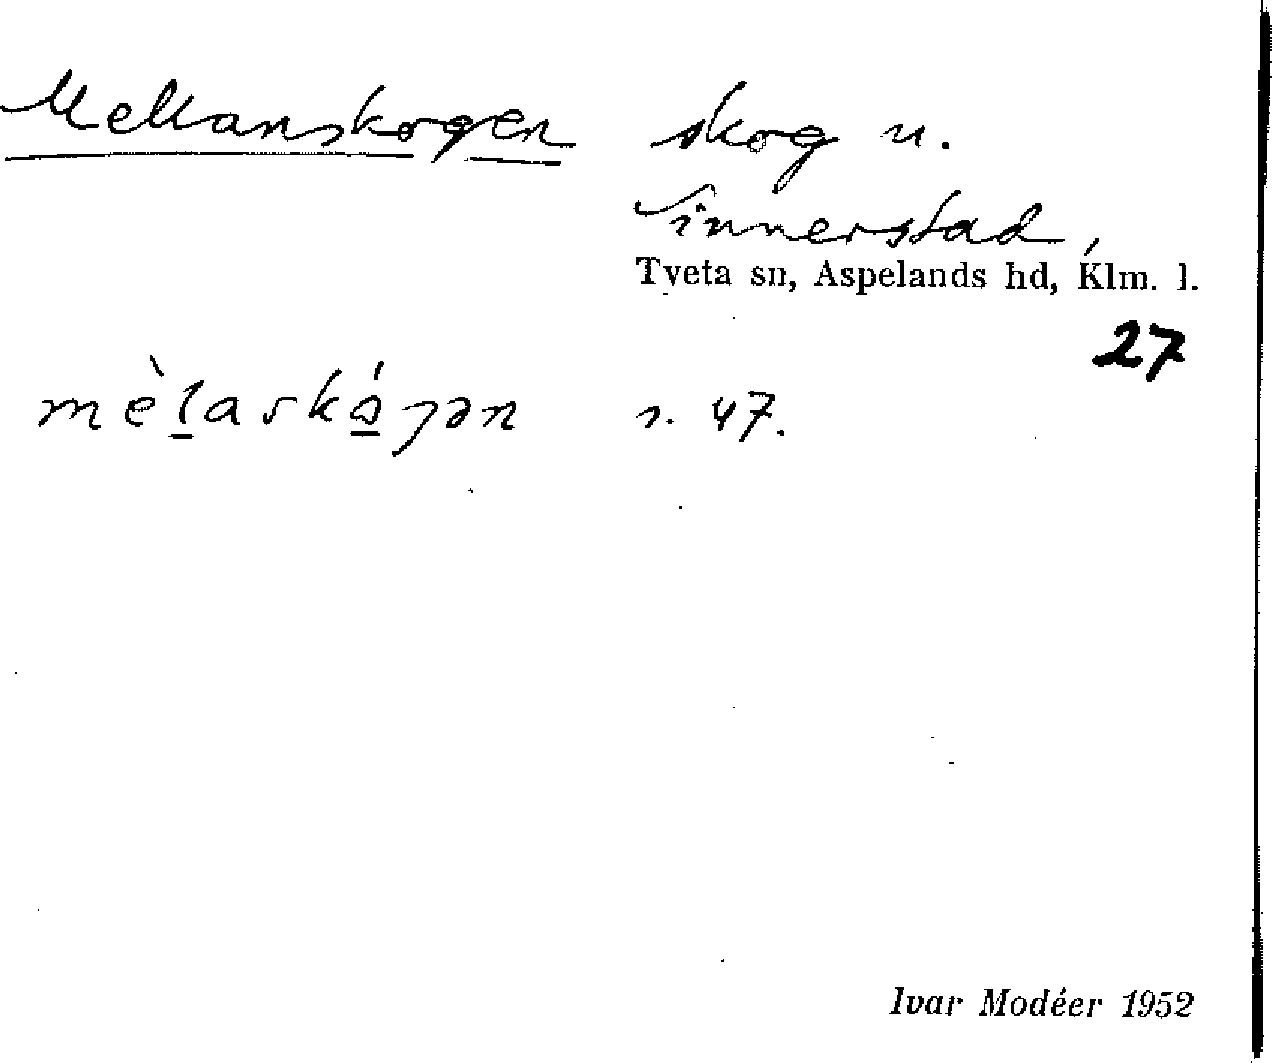 Mellanskogen skog u.
Vinnerstad,
Tveta sn, Aspelands hd, Klm. l.
27
mèlaskó̱gən s. 47.
Ivar Modéer 1952